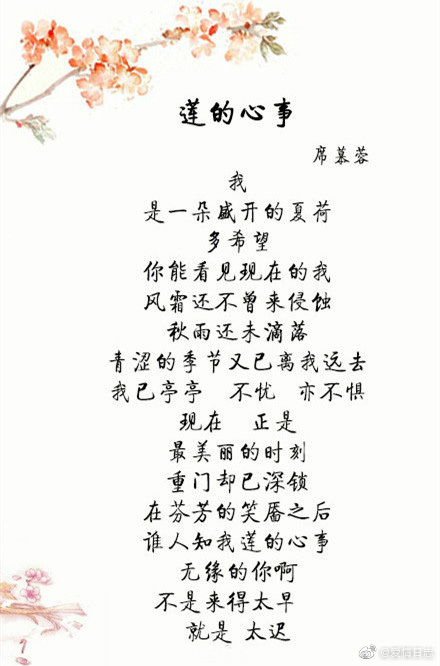 莲的心事
席慕蓉
我
是一朵盛开的夏荷
多希望
你能看见现在的我
风霜还不曾来侵蚀
秋雨还未滴落
青涩的季节又已离我远去
我已亭亭 不忧 亦不惧
现在 正是
最美丽的时刻
重门却已深锁
在芬芳的笑靥之后
谁人知我莲的心事
无缘的你啊
不是来得太早
就是 太迟